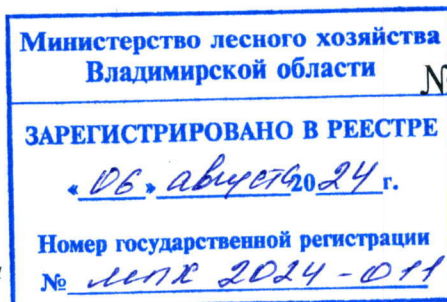 Министерство лесного хозяйства
Владимирской области
№
ЗАРЕГИСТРИРОВАНО В РЕЕСТРЕ
«06» августа 2024 г.
Номер государственной регистрации
№ мпх 2024-011